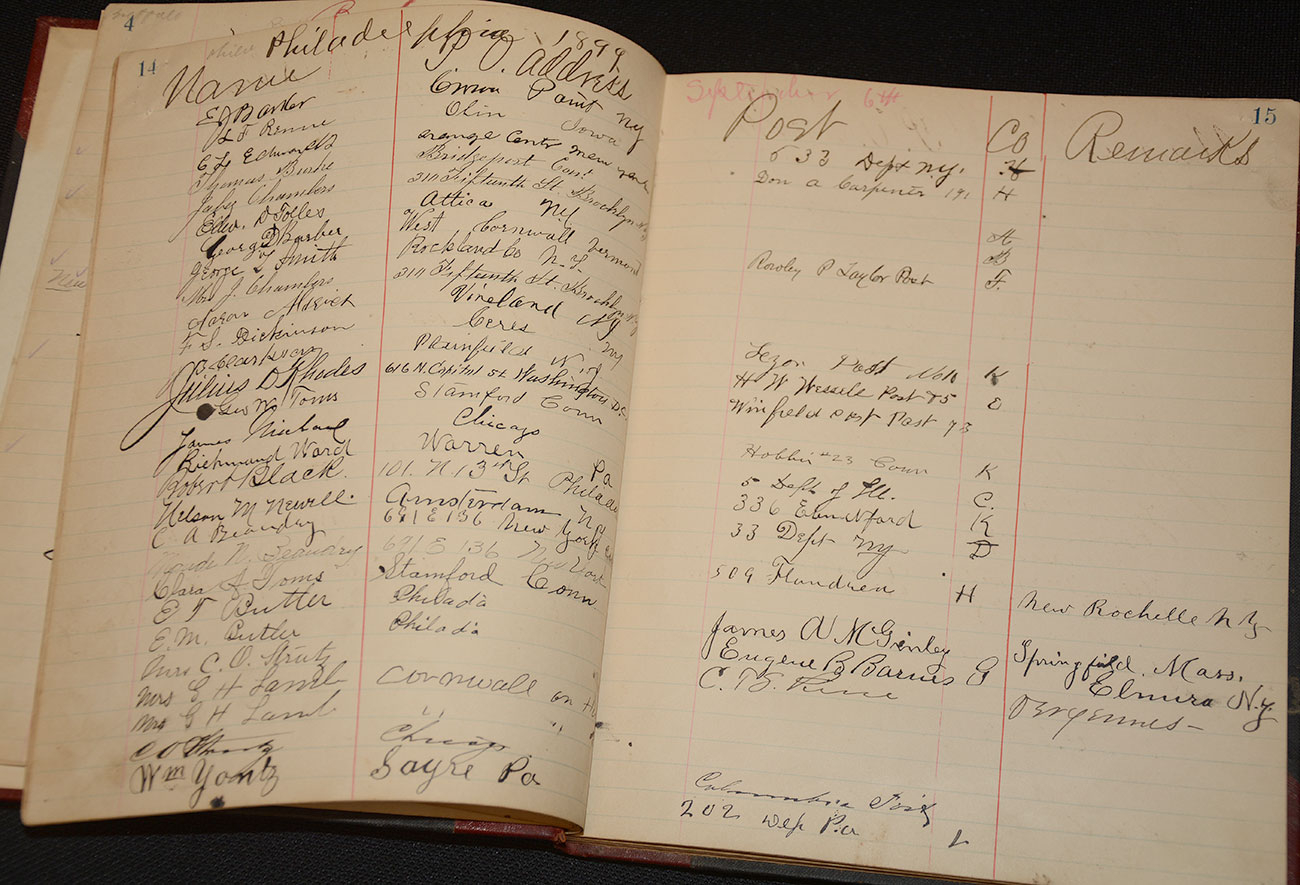 4
14
Philadelphia 1899
Name P.O. Address
E J Barker Crown Point NY
L F Renne Olin Iowa
E L Edwards Orange Center New York
Thomas Burke Bridgeport Con
Jabez Chambers 211 Fifteenth St. Brooklyn N.Y.
Edw. D Tolles Attica NY
George D Barber West Cornwall Vermont
George T Smith Rockland Co N.Y.
Mrs J. Chambers 211 Fifteenth St. Brooklyn N.Y.
Aaron Vineland NJ
F. S. Dickinson Ceres NY
Clarkson Plainfield N
Julius D Rhodes 616 N. Capitol St Washington D.C.
Geo W Toms Stamford Conn
James Michael Chicago
Richmond Ward Warren Pa
Robert Black. 101. N. 13th St Philada
Nelson M Newell Amsterdam NY
C A Beaudry 691 E 136 New York
Beaudry 691 E 136 New York
Clara A Toms Stamford Conn
E T Butler Philada
E. M. Butler Philada
Mrs C. O. Strutz
Mrs G H Lamb Cornwall on
Mrs G H Lamb " "
C O Strutz Chicago
Wm Yontz Sayre Pa
15
September 6th
Post Co Remarks
533 Dept N.Y. H
Don A Carpenter 191 H
Rowley P Taylor Post F
Post No 10 K
H W Wessels Post 85 D
Winfield Post 73
Hobbie #23 Conn K
5 Dept of Ill. C
336 K
33 Dept NY D
509 Flandreau H New Rochelle N.Y.
James A McGinley Springfield. Mass.
Eugene B Barnes G Elmira N.Y.
C. F.
Columbia Post
202 Dep Pa L